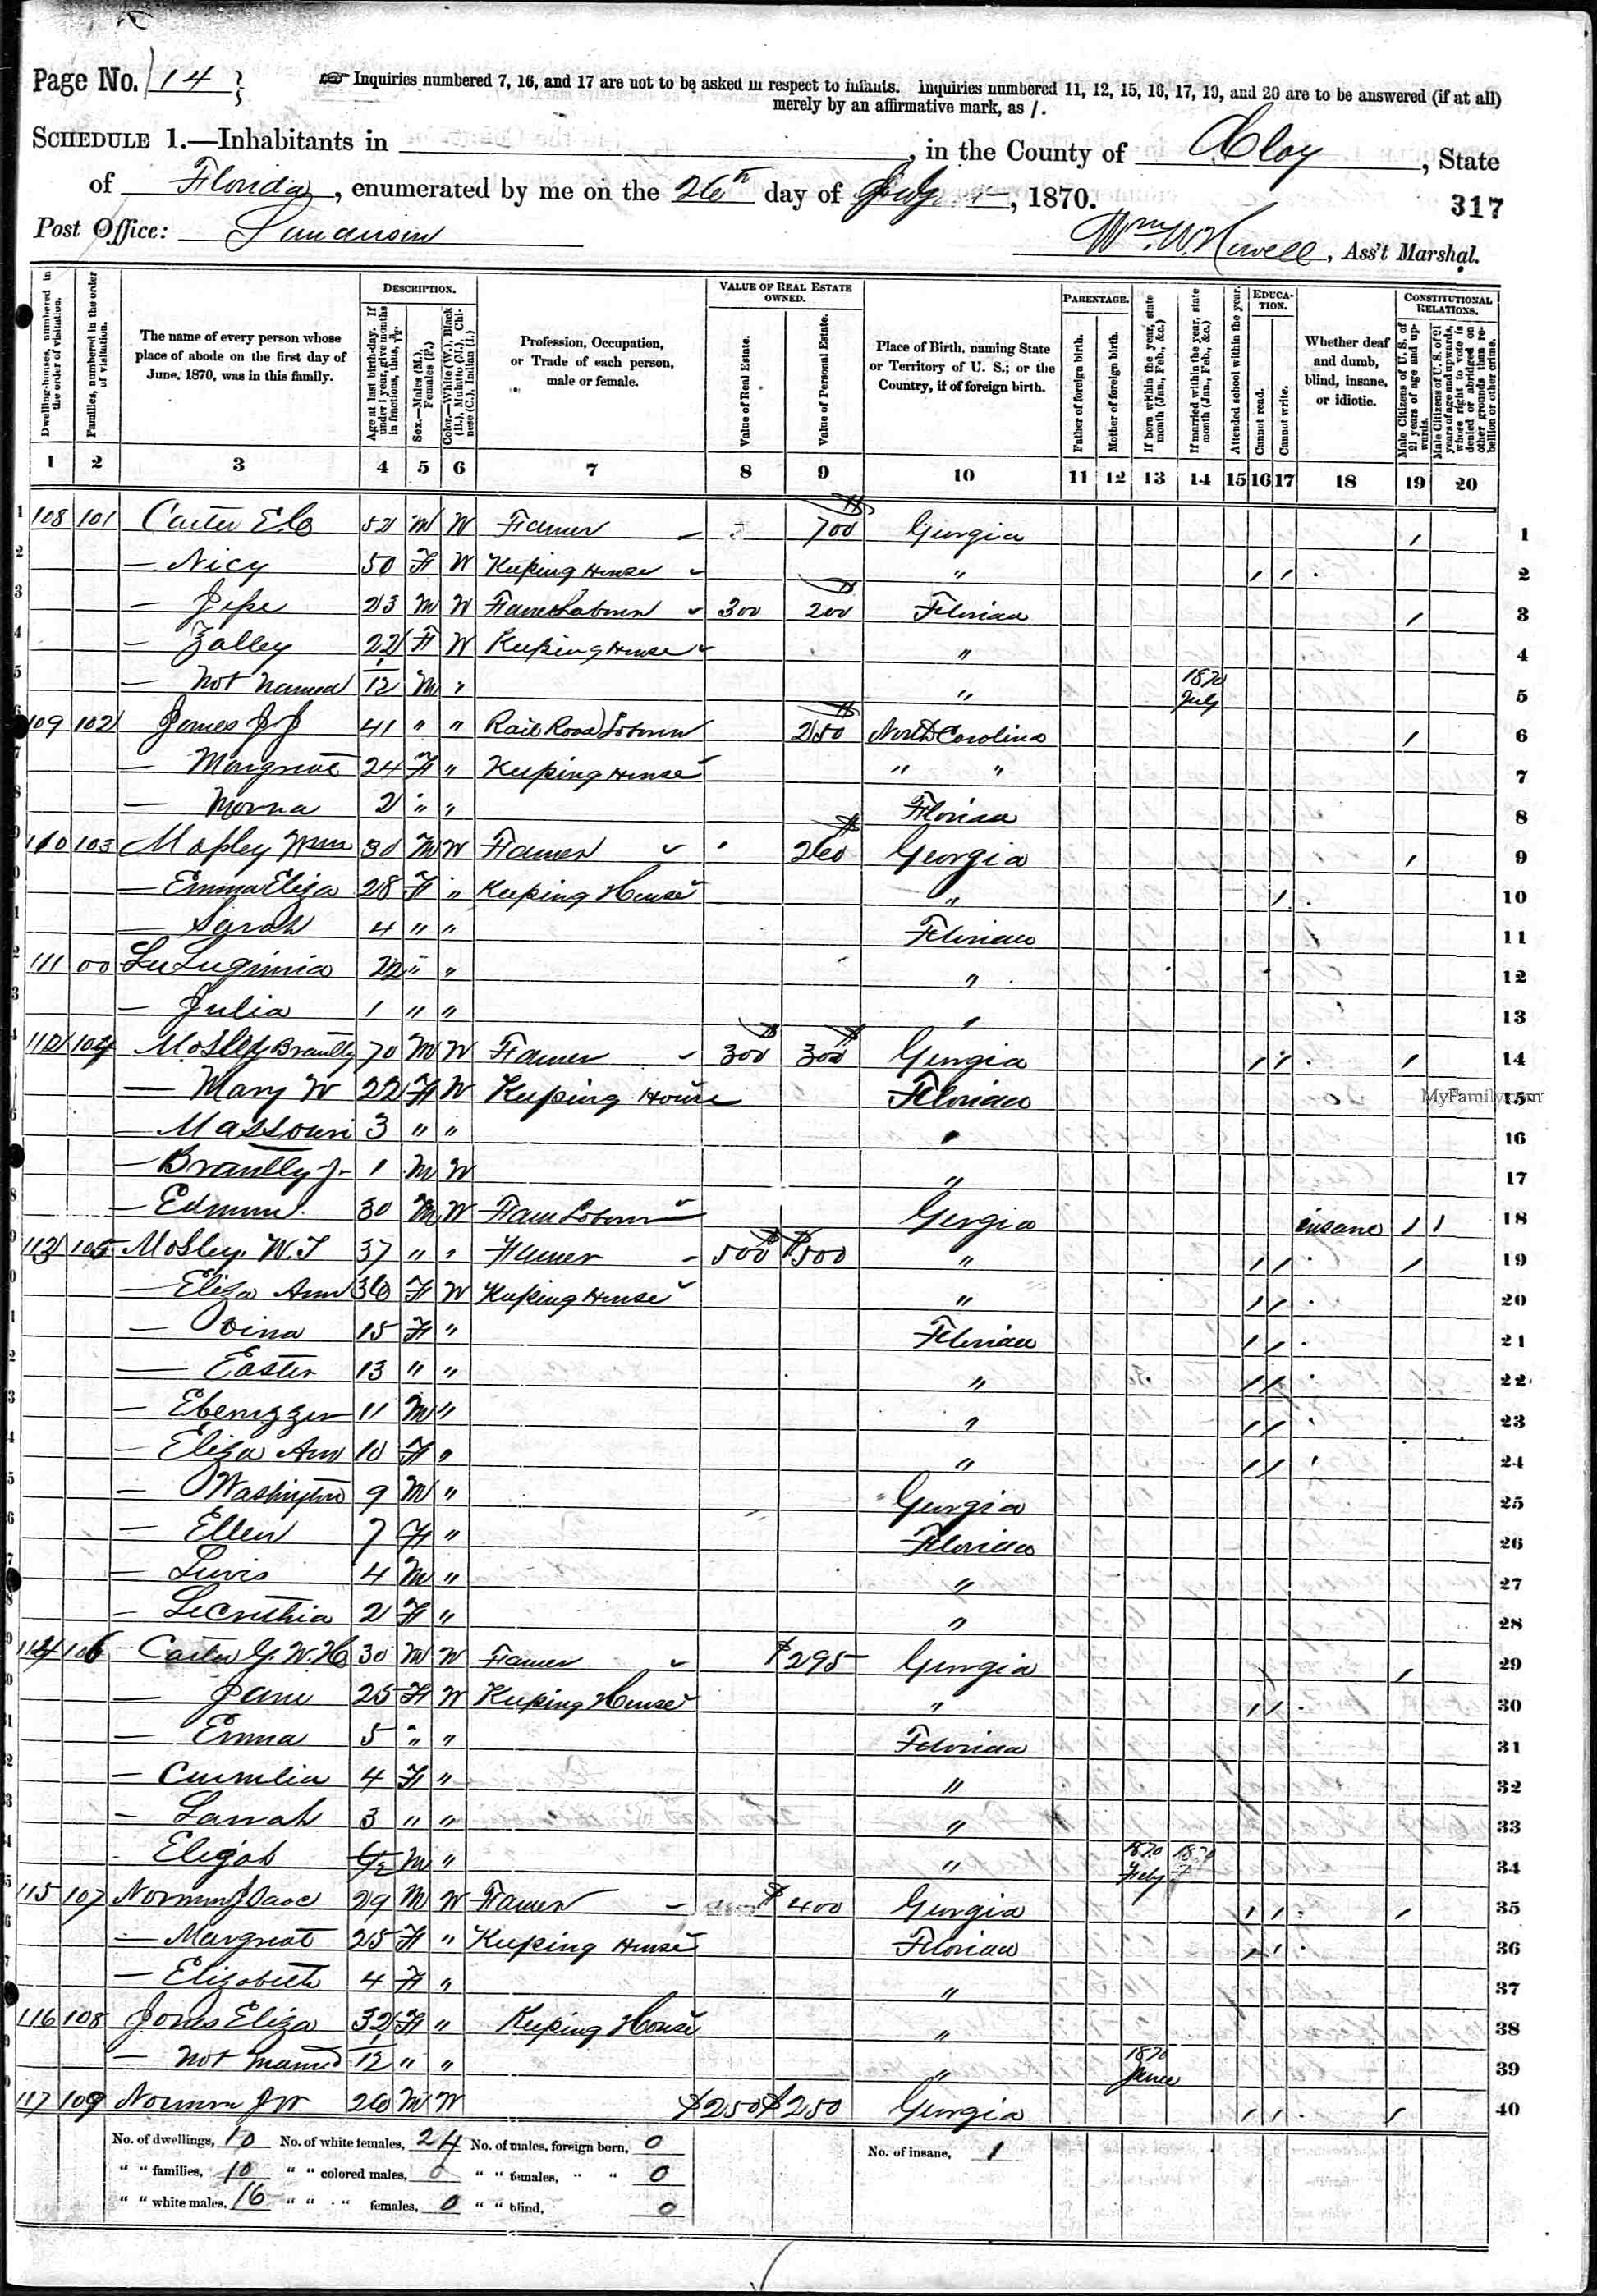 Page No. 14
Inquiries numbered 7, 16, and 17 are not to be asked in respect to infants. Inquiries numbered 11, 12, 15, 16, 17, 19, and 20 are to be answered (if at all)
merely by an affirmative mark, as /.
SCHEDULE 1.—Inhabitants in , in the County of Clay, State
of Florida, enumerated by me on the 26th day of July, 1870.
317
Post Office:
Wm. W. , Ass't Marshal.
Dwelling-houses, numbered in the order of visitation.
Families, numbered in the order of visitation.
The name of every person whose place of abode on the first day of June, 1870, was in this family.
DESCRIPTION.
Age at last birth-day. If under 1 year, give months in fractions, thus, 3/12
Sex.—Males (M.), Females (F.)
Color.—White (W.), Black (B.), Mulatto (M.), Chinese (C.), Indian (I.)
Profession, Occupation, or Trade of each person, male or female.
VALUE OF REAL ESTATE OWNED.
Value of Real Estate.
Value of Personal Estate.
Place of Birth, naming State or Territory of U. S.; or the Country, if of foreign birth.
PARENTAGE.
Father of foreign birth.
Mother of foreign birth.
If born within the year, state month (Jan., Feb., &c.)
If married within the year, state month (Jan., Feb., &c.)
Attended school within the year.
EDUCATION.
Cannot read.
Cannot write.
Whether deaf and dumb, blind, insane, or idiotic.
CONSTITUTIONAL RELATIONS.
Male Citizens of U. S. of 21 years of age and upwards.
Male Citizens of U. S. of 21 years of age and upwards, whose right to vote is denied or abridged on other grounds than rebellion or other crime.
1 2 3 4 5 6 7 8 9 10 11 12 13 14 15 16 17 18 19 20
1 108 101 Carter 52 M W Farmer 700 Georgia / 1
2 — Nicy 50 F W Keeping House " / / 2
3 — 23 M W 300 200 Florida / 3
4 — Zalley 22 F W Keeping House " 4
5 — Not Named 1/12 M " " 1870 July 5
109 102 James J J 41 " " Rail Road 250 North Carolina / 6
— 24 F " Keeping House " " 7
— 2 " " Florida 8
110 103 Wm 30 M W Farmer 260 Georgia / 9
— Emma Eliza 28 F " Keeping House " / 10
— Sarah 4 " " Florida 11
111 00 22 " " " 12
— Julia 1 " " " 13
112 104 Mosley Brantly 70 M W Farmer 300 300 Georgia / / / 14
— Mary W 22 F W Keeping House Florida 15
MyFamily.com
— Massouri 3 " " " 16
— Brantly Jr 1 M W " 17
— Edmun 30 M W Georgia insane / / 18
113 105 Mosley W. T 37 " " Farmer 500 $500 " / / / 19
— Eliza Ann 36 F W Keeping House " / / 20
— Vina 15 F " Florida / / 21
— Easter 13 " " " / / 22
— Ebenezzer 11 M " " / / 23
— Eliza Ann 10 F " " / / 24
— Washington 9 M " Georgia 25
— Ellen 7 F " Florida 26
— 4 M " " 27
— 2 F " " 28
114 106 Carter G. W. H 30 M W Farmer $295 Georgia / 29
— Jane 25 F W Keeping House " / / 30
— Emma 5 " " Florida 31
— 4 F " " 32
— Sarrah 3 " " " 33
Eligah M " " 1870 34
115 107 Norman Isaac 29 M W Farmer $400 Georgia / / / 35
— Margreat 25 F " Keeping House Florida / / 36
— Elizabeth 4 F " " 37
116 108 Jones Eliza 32 F " Keeping House " 38
— Not Named 1/12 " " " 1870 June 39
117 109 Norman J W 26 M W $250 $250 Georgia / / / 40
No. of dwellings, 10 No. of white females, 24 No. of males, foreign born, 0 No. of insane, 1
" " families, 10 " " colored males, 0 " " females, " " 0
" " white males, 16 " " " females, 0 " " blind, 0